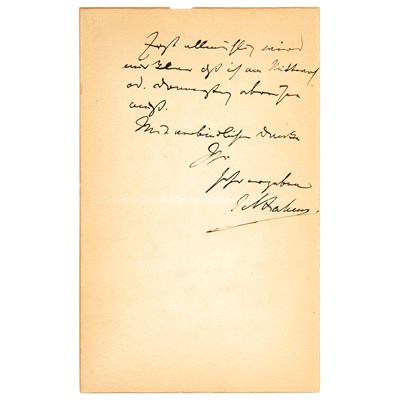 Erst allmählig wird
klar daß ich am Mittwoch
od. Donnerstag abreisen
muß.
Mit verbindlichem Danke
Ihr
sehr ergebener